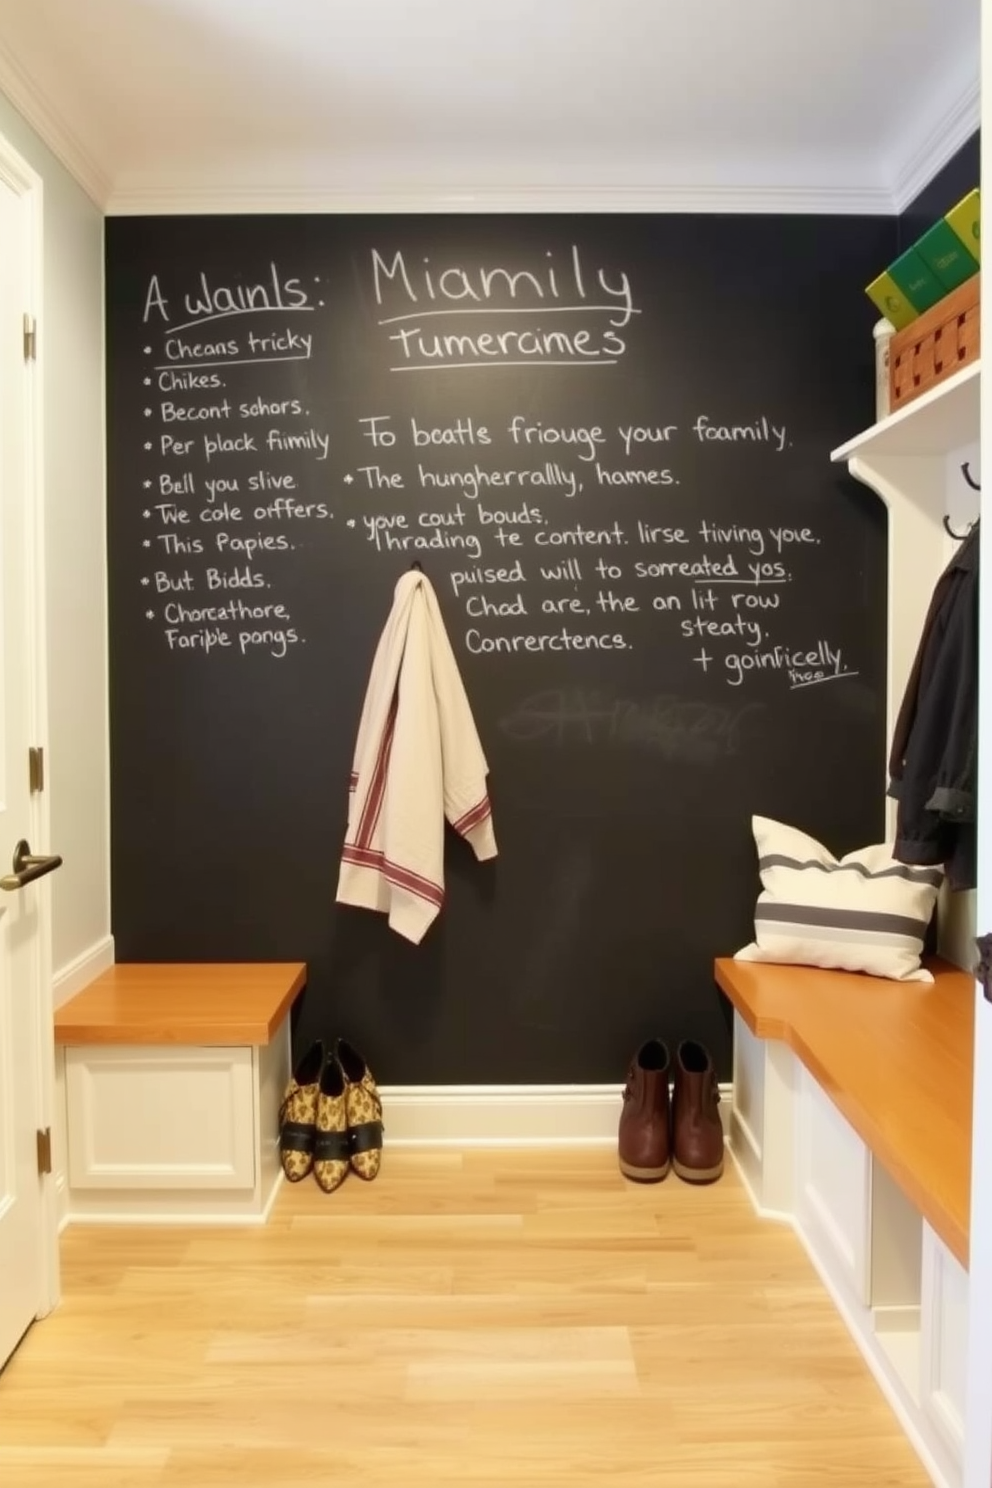 A wainls:
• Cheans tricky
• Chikes.
• Becont schors.
• Per black fiimily
• Bell you slive
• Twe cole orffers.
• This Papies.
• But Bidds.
• Chorcathore,
Farible pongs.
Miamily
Tumercimes
To boatls friouge your foamily.
• The hungherrallly, hames.
• yove cout bouds.
Thrading te content. lirse tiving your.
puised will to sorreated yos.
Chod are, the an lit row
steaty.
Conrerctencs.
+ goinficelly.